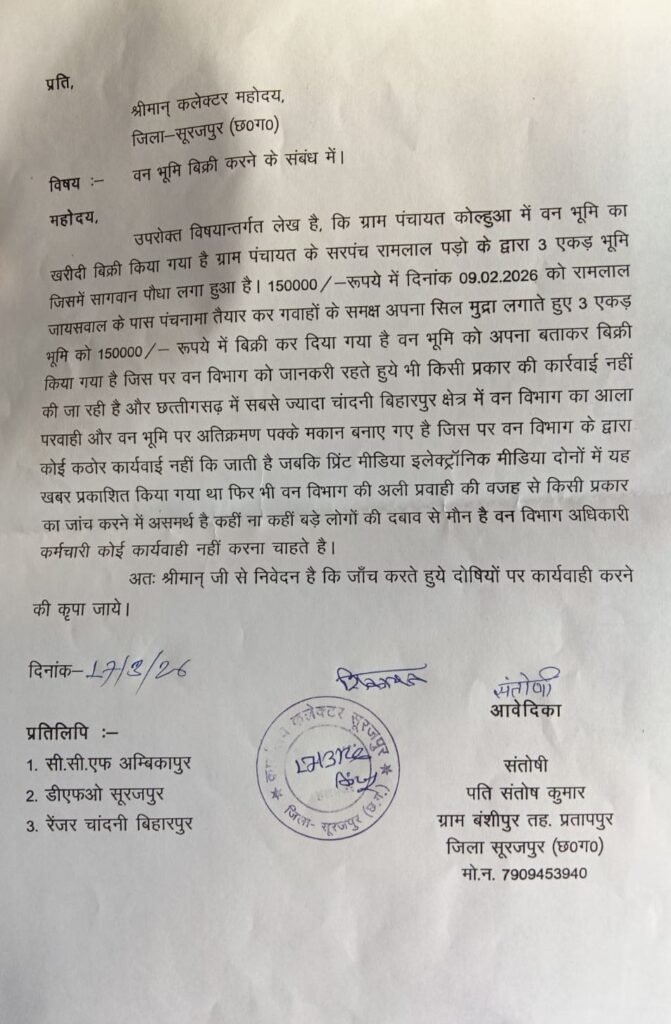 प्रति,
श्रीमान् कलेक्टर महोदय,
जिला–सूरजपुर (छ0ग0)
विषय :– वन भूमि बिक्री करने के संबंध में।
महोदय,
उपरोक्त विषयान्तर्गत लेख है, कि ग्राम पंचायत कोल्हुआ में वन भूमि का
खरीदी बिक्री किया गया है ग्राम पंचायत के सरपंच रामलाल पड़ो के द्वारा 3 एकड़ भूमि
जिसमें सागवान पौधा लगा हुआ है। 150000/–रूपये में दिनांक 09.02.2026 को रामलाल
जायसवाल के पास पंचनामा तैयार कर गवाहों के समक्ष अपना सिल मुद्रा लगाते हुए 3 एकड़
भूमि को 150000/– रूपये में बिक्री कर दिया गया है वन भूमि को अपना बताकर बिक्री
किया गया है जिस पर वन विभाग को जानकरी रहते हुये भी किसी प्रकार की कार्रवाई नहीं
की जा रही है और छत्तीगसढ़ में सबसे ज्यादा चांदनी बिहारपुर क्षेत्र में वन विभाग का आला
परवाही और वन भूमि पर अतिक्रमण पक्के मकान बनाए गए है जिस पर वन विभाग के द्वारा
कोई कठोर कार्यवाई नहीं कि जाती है जबकि प्रिंट मीडिया इलेक्ट्रॉनिक मीडिया दोनों में यह
खबर प्रकाशित किया गया था फिर भी वन विभाग की अली प्रवाही की वजह से किसी प्रकार
का जांच करने में असमर्थ है कहीं ना कहीं बड़े लोगों की दबाव से मौन है वन विभाग अधिकारी
कर्मचारी कोई कार्यवाही नहीं करना चाहते है।
अतः श्रीमान् जी से निवेदन है कि जाँच करते हुये दोषियों पर कार्यवाही करने
की कृपा जाये।
दिनांक–17/3/26
संतोषी
आवेदिका
प्रतिलिपि :–
1. सी.सी.एफ अम्बिकापुर
2. डीएफओ सूरजपुर
3. रेंजर चांदनी बिहारपुर
कलेक्टर सूरजपुर
जिला- सूरजपुर (छ.ग.)
संतोषी
पति संतोष कुमार
ग्राम बंशीपुर तह. प्रतापपुर
जिला सूरजपुर (छ0ग0)
मो.न. 7909453940